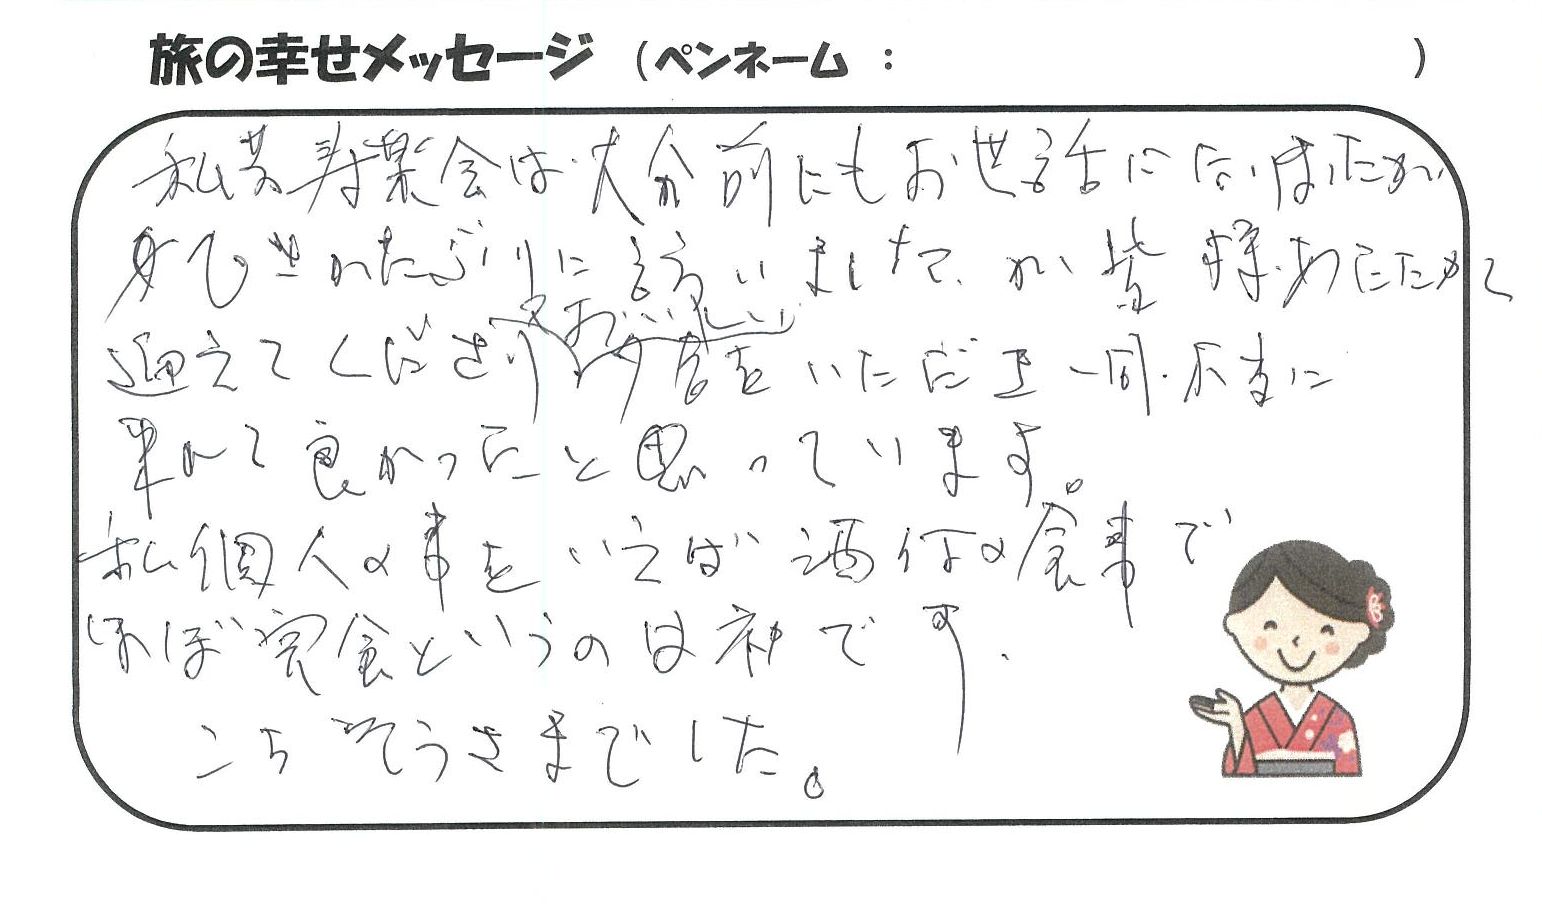 旅の幸せメッセージ (ペンネーム : )
私共寿楽会は大分前にもお世話になりましたが
久しぶりに伺いましたが皆様あたたかく
迎えてくださり又おいしい料理をいただき一同本当に
来れて良かったと思っています。
私個人の事をいえば酒付の食事で
ほぼ完食というのは初です.
ごちそうさまでした。